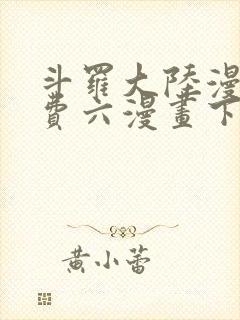 斗羅大陸漫
費六漫畫下
黄小蕾